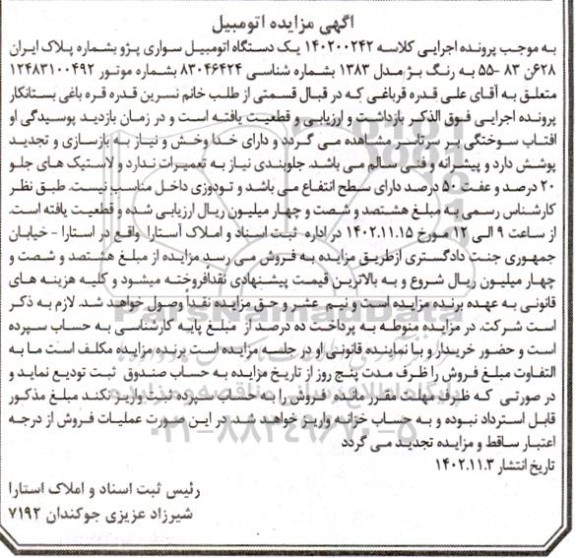 آگهی مزایده اتومبیل
به موجب پرونده اجرایی کلاسه ۱۴۰۲۰۰۲۴۲ یک دستگاه اتومبیل سواری پژو بشماره پلاک ایران
۶۲۸ن ۸۳ -۵۵ به رنگ بژ مدل ۱۳۸۳ بشماره شناسی ۸۳۰۴۶۴۲۴ بشماره موتور ۱۲۴۸۳۱۰۰۴۹۲
متعلق به آقای علی قدره قرباغی که در قبال قسمتی از طلب خانم نسرین قدره قره باغی بستانکار
پرونده اجرایی فوق الذکر بازداشت و ارزیابی و قطعیت یافته است و در زمان بازدید پوسیدگی او
افتاب سوختگی بر سرتاسر مشاهده می گردد و دارای خدا وخش و نیاز به بازسازی و تجدید
پوشش دارد و پیشرانه و فنی سالم می باشد. جلوبندی نیاز به تعمیرات ندارد و لاستیک های جلو
۲۰ درصد و عفت ۵۰ درصد دارای سطح انتفاع می باشد و تودوزی داخل مناسب نیست. طبق نظر
کارشناس رسمی به مبلغ هشتصد و شصت و چهار میلیون ریال ارزیابی شده و قطعیت یافته است.
از ساعت ۹ الی ۱۲ مورخ ۱۴۰۲.۱۱.۱۵ در اداره ثبت اسناد و املاک آستارا واقع در استارا - خیابان
جمهوری جنت دادگستری ازطریق مزایده به فروش می رسد مزایده از مبلغ هشتصد و شصت و
چهار میلیون ریال شروع و به بالاترین قیمت پیشنهادی نقدافروخته میشود و کلیه هزینه های
قانونی به عهده برنده مزایده است و نیم عشر و حق مزایده نقدا وصول خواهد شد. لازم به ذکر
است شرکت. در مزایده منوطه به پرداخت ده درصد از مبلغ پایه کارشناسی به حساب سپرده
است و حضور خریدار و یا نماینده قانونی او در جلسه مزایده است برنده مزایده مکلف است ما به
التفاوت مبلغ فروش را ظرف مدت پنج روز از تاریخ مزایده به حساب صندوق ثبت تودیع نماید و
در صورتی که ظرف مهلت مقرر مانده فروش را به حساب سپرده ثبت واریز نکند مبلغ مذکور
قابل استرداد نبوده و به حساب خزانه واریز خواهد شد در این صورت عملیات فروش از درجه
اعتبار ساقط و مزایده تجدید می گردد
تاریخ انتشار ۱۴۰۲.۱۱.۳
رئیس ثبت اسناد و املاک استارا
شیرزاد عزیزی جوکندان ۷۱۹۲
ParsNamadData
پایگاه اطلاع رسانی مناقصه و مزایده
۰۲۱-۸۸۳۴۹۶۷۰-۵